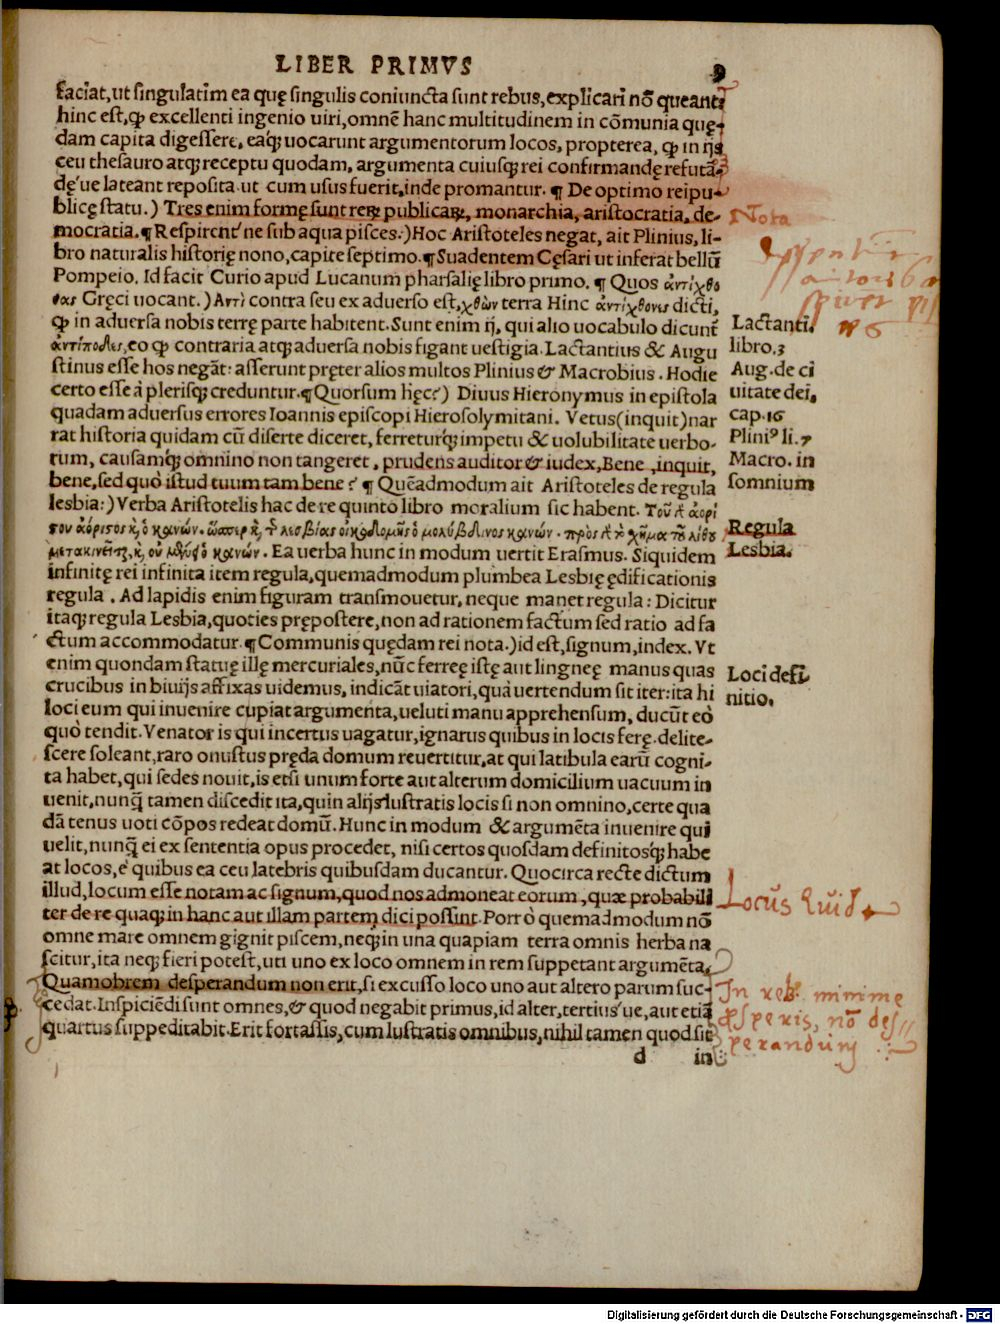 LIBER PRIMVS
9
faciat, ut singulatim ea quę singulis coniuncta sunt rebus, explicari nõ queant:
hinc est, ꝙ excellenti ingenio uiri, omnẽ hanc multitudinem in cõmunia quę-
dam capita digessere, eaq́; uocarunt argumentorum locos, propterea, ꝙ in ijs
ceu thesauro atq; receptu quodam, argumenta cuiusq; rei confirmandę refutã-
dę́ue lateant reposita ut cum usus fuerit, inde promantur. ¶ De optimo reipu-
blicę statu.) Tres enim formę sunt reꝝ publicaꝝ, monarchia, aristocratia, de-
mocratia. ¶ Respirent́ ne sub aqua pisces.) Hoc Aristoteles negat, ait Plinius, li-
bro naturalis historię nono, capite septimo. ¶ Suadentem Cęsari ut inferat bellũ
Pompeio. Id facit Curio apud Lucanum pharsalię libro primo. ¶ Quos ἀντίχθο
νας Gręci uocant.) Αντὶ contra seu ex aduerso est, χθὼν terra Hinc ἀντίχθονες dicti,
ꝙ in aduersa nobis terrę parte habitent. Sunt enim ij, qui alio uocabulo dicunt̃
ἀντίποδες, eo ꝙ contraria atq; aduersa nobis figant uestigia. Lactantius & Augu
stinus esse hos negãt: asserunt pręter alios multos Plinius & Macrobius. Hodie
certo esse à plerisq; creduntur. ¶ Quorsum hęc?) Diuus Hieronymus in epistola
quadam aduersus errores Ioannis episcopi Hierosolymitani. Vetus (inquit) nar
rat historia quidam cũ diserte diceret, ferreturq́; impetu & uolubilitate uerbo-
rum, causamq́; omnino non tangeret, prudens auditor & iudex, Bene, inquit,
bene, sed quò istud tuum tam bene? ¶ Quẽadmodum ait Aristoteles de regula
lesbia:) Verba Aristotelis hac de re quinto libro moralium sic habent. Τοῦ γὰρ ἀορί
στου ἀόριστος καὶ ὁ κανών. ὥσπερ καὶ τῆς λεσβίας οἰκοδομῆς ὁ μολύβδινος κανών. πρὸς γὰρ τὸ σχῆμα τοῦ λίθου
μετακινεῖται, καὶ οὐ μένει ὁ κανών. Ea uerba hunc in modum uertit Erasmus. Siquidem
infinitę rei infinita item regula, quemadmodum plumbea Lesbię ędificationis
regula. Ad lapidis enim figuram transmouetur, neque manet regula: Dicitur
itaq; regula Lesbia, quoties prępostere, non ad rationem factum sed ratio ad fa
ctum accommodatur. ¶ Communis quędam rei nota.) id est, signum, index. Vt
enim quondam statuę illę mercuriales, nũc ferreę istę aut lingneę manus quas
crucibus in biuijs affixas uidemus, indicãt uiatori, quà uertendum sit iter: ita hi
loci eum qui inuenire cupiat argumenta, ueluti manu apprehensum, ducũt eò
quò tendit. Venator is qui incertus uagatur, ignarus quibus in locis ferę delite-
scere soleant, raro onustus pręda domum reuertitur, at qui latibula earũ cogni-
ta habet, qui sedes nouit, is etsi unum forte aut alterum domicilium uacuum in
uenit, nunq̃ tamen discedit ita, quin alijs lustratis locis si non omnino, certe qua
dã tenus uoti cõpos redeat domũ. Hunc in modum & argumẽta inuenire qui
uelit, nunq̃ ei ex sententia opus procedet, nisi certos quosdam definitosq́; habe
at locos, è quibus ea ceu latebris quibusdam ducantur. Quocirca recte dictum
illud, locum esse notam ac signum, quod nos admoneat eorum, quæ probabili
ter de re quaq; in hanc aut illam partem dici possint. Porrò quemadmodum nõ
omne mare omnem gignit piscem, neq; in una quapiam terra omnis herba na
scitur, ita neq; fieri potest, uti uno ex loco omnem in rem suppetant argumẽta.
Quamobrem desperandum non erit, si excusso loco uno aut altero parum suc-
cedat. Inspiciẽdi sunt omnes, & quod negabit primus, id alter, tertiuś ue, aut etiã
quartus suppeditabit. Erit fortassis, cum lustratis omnibus, nihil tamen quod sit
d in
Nota
Lactanti.
libro.3
Aug. de ci
uitate dei,
cap.16
Pliniꝰ li.7
Macro. in
somnium
Regula
Lesbia.
Loci defi-
nitio.
Locus Quid
In reb. minime
ꝓsperis, nõ des//
perandum
Digitalisierung gefördert durch die Deutsche Forschungsgemeinschaft - DFG